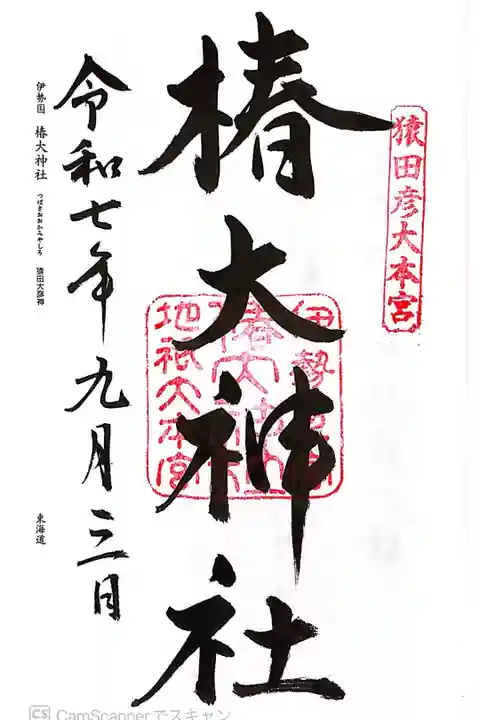 猿田彦大本宮
椿大神社
地祇大本宮
令和七年九月三日
伊勢国 椿大神社 つばきおおかみやしろ 猿田大彦神
東海道
CamScannerでスキャン